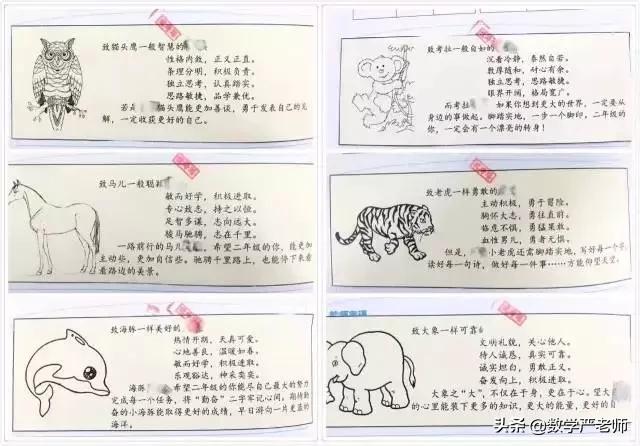 致猫头鹰一般智慧的
性格内敛，正义正直。
条理分明，积极负责。
独立思考，认真踏实。
思路敏捷，品学兼优。
若 猫头鹰能更加善谈，勇于发表自己的见
解，一定收获更好的自己。
致马儿一般聪
敏而好学，积极进取。
专心致志，持之以恒。
足智多谋，志向远大。
骏马驰骋，志在千里。
一路前行的马儿 ，希望二年级的你，能更加
主动些，更加自信些。驰骋千里路上，也能停下来看
看路边的美景。
致海豚一样美好的
热情开朗，天真可爱。
心地善良，温暖如春。
敏而好学，积极进取。
乐观豁达，神采奕奕。
海豚 希望二年级的你能尽自己最大的努力
完成每一个任务，将“勤奋”二字牢记心间。期待勤
奋的小海豚能取得更好的成绩，早日游向一片更蓝的
海洋。
致考拉一般自如的
沉着冷静，泰然自若。
敦厚随和，耐心有余。
独立思考，思路敏捷。
眼界开阔，格局宽广。
而考拉 如果你想到更大的世界，一定要从
身边的事做起。脚踏实地，一步一个脚印，二年级的
你，一定会有一个漂亮的转身！
致老虎一样勇敢的
主动积极，勇于冒险。
胸怀大志，勇往直前。
临危不惧，勇猛果敢。
血性男儿，勇者无惧。
但是， 小老虎还需脚踏实地，写好每一个字，
读好每一句诗，做好每一件事……方能仰望天空。
致大象一样可靠
文明礼貌，关心他人。
待人诚恳，真实可靠。
诚实坦白，勇敢正义。
奋发向上，积极进取。
大象之“大”，不仅在于身，更在于心。望大
的心里能装下更多的知识，更大的能量，更好的自
头条 @数学严老师